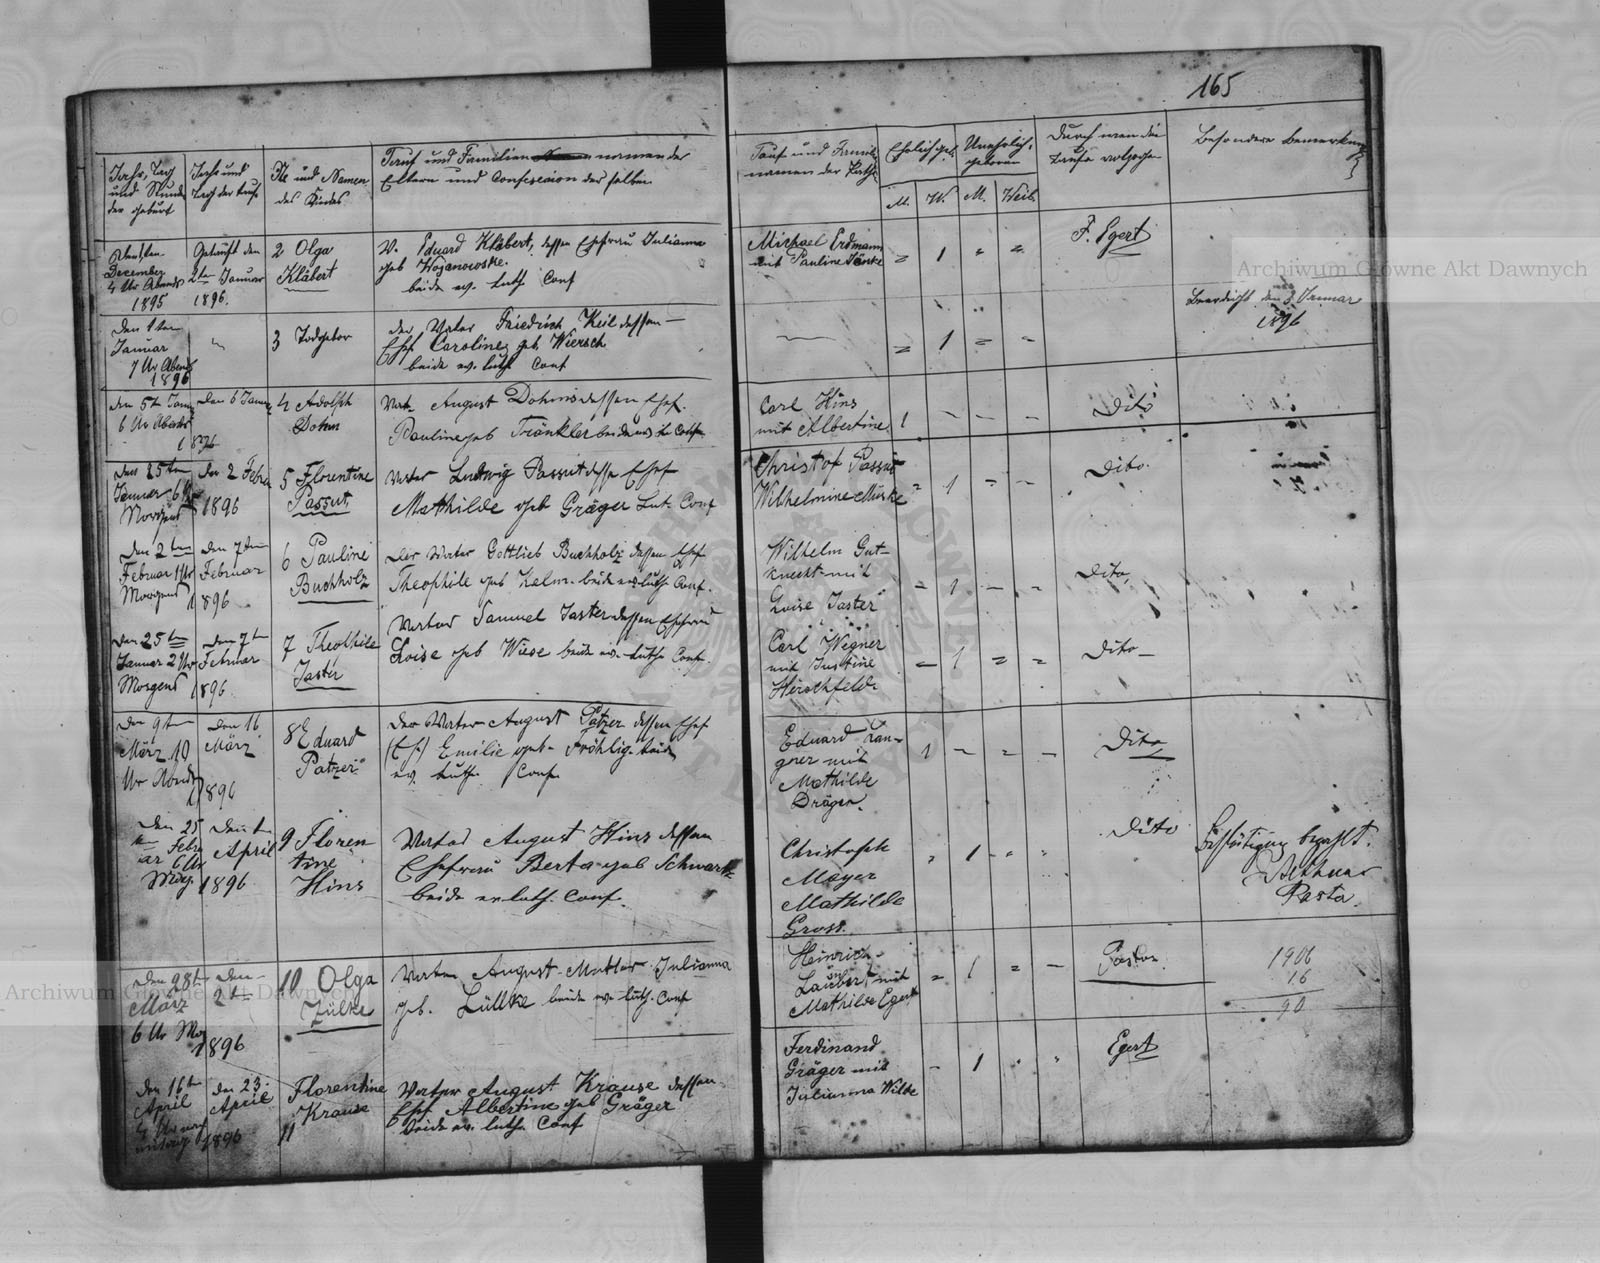 165
Jahr, Tag
und Stunde
der geburt
Jahr und
Tag der Taufe
No und Namen
des Kindes
Tauf und Familien namen der
Eltern und Confession derselben
Tauf und Famili
namen der Pathe
Ehelich geb.
Unehelich
geboren
M. W. M. Weib.
Durch wen die
Taufe volzogen
Besondere Bemerkung
December
4 Ur Abends
1895
Getauft den
2ten Januar
1896.
2 Olga
Klabert
V. Eduard Klabert, dessen Ehefrau Julianna
geb Wojanowske.
beide ev. luth. Conf
Michael Erdmann
mit Pauline
1
F. Egert
Den 1ten
Januar
7 Ur Abends
1896
3 Todgebor
der Vater Friedrich Keil dessen
Ehef Caroline geb Wiersch
beide ev. luth. Conf
1
Beerdicht den 3 Januar
1896
den 5t Janu
6 Ur Abends
1896
den 6 Janua
4 Adolph
Dohm
Vat. August Dohm dessen Ehef.
Pauline geb Tränkler beide ev. lu Conf
Carl Hins
mit Albertine
1
Dito
den 25ten
Januar 6 Ur
Morgens
Den 2 Febru
1896
5 Florentine
Passut
Vater Ludwig Passut dessen Ehef
Mathilde geb Gräger Lut. Conf
Christof Passut
Wilhelmine Müske
1
Dito.
Den 2ten
Februar 1 Ur
Morgens
Den 7ten
Februar
1896
6 Pauline
Buchholz
Der Vater Gottlieb Buchholz dessen Ehef
Theophile geb Kelm beide ev. luth Conf.
Wilhelm Gut-
knecht mit
Loise Jaster
1
Dito,
Den 25ten
Januar 2 Ur
Morgens
Den 7ten
Februar
1896
7 Theophile
Jaster
Vater Samuel Jaster dessen Ehefrau
Loise geb Wiese beide ev. Luth. Conf.
Carl Wegner
mit Justine
Hirschfelde
1
Dito
Den 9ten
März 10
Ur Abends
Den 16
März
1896
8 Eduard
Patzer
Der Vater August Patzer dessen Ehef
Emilie geb. Fröhlig beide
ev. Luth. Conf.
Eduard Lan-
gner mit
Mathilde
Dräger.
1
Dito
Den 25
Febru
ar 6 Ur
Morg.
April
1896
9 Floren
tine
Hins
Vater August Hins dessen
Ehefrau Berta geb Schwartz
beide ev luth. Conf.
Christoph
Mayer
Mathilde
Gross.
1
Dito
Pasto.
Den 28t
März
6 Ur Mor
Den
2t
1896
10 Olga
Zülke
Vater August Mutter Julianna
geb. Lüllke beide ev. luth. Conf
Heinrich
Laubert mit
Mathilde Egert
1
Pastor.
1906
16
90
Den 16ten
April
4 Ur nach
mittag
Den 23
April
1896
Florentine
Krause
11
Vater August Krause dessen
Ehef Albertine geb Gräger
beide ev. luth. Conf
Ferdinand
Gräger mit
Julianna Wilde
1
Egert
Archiwum Główne Akt Dawnych
Archiwum Główne Akt Dawnych